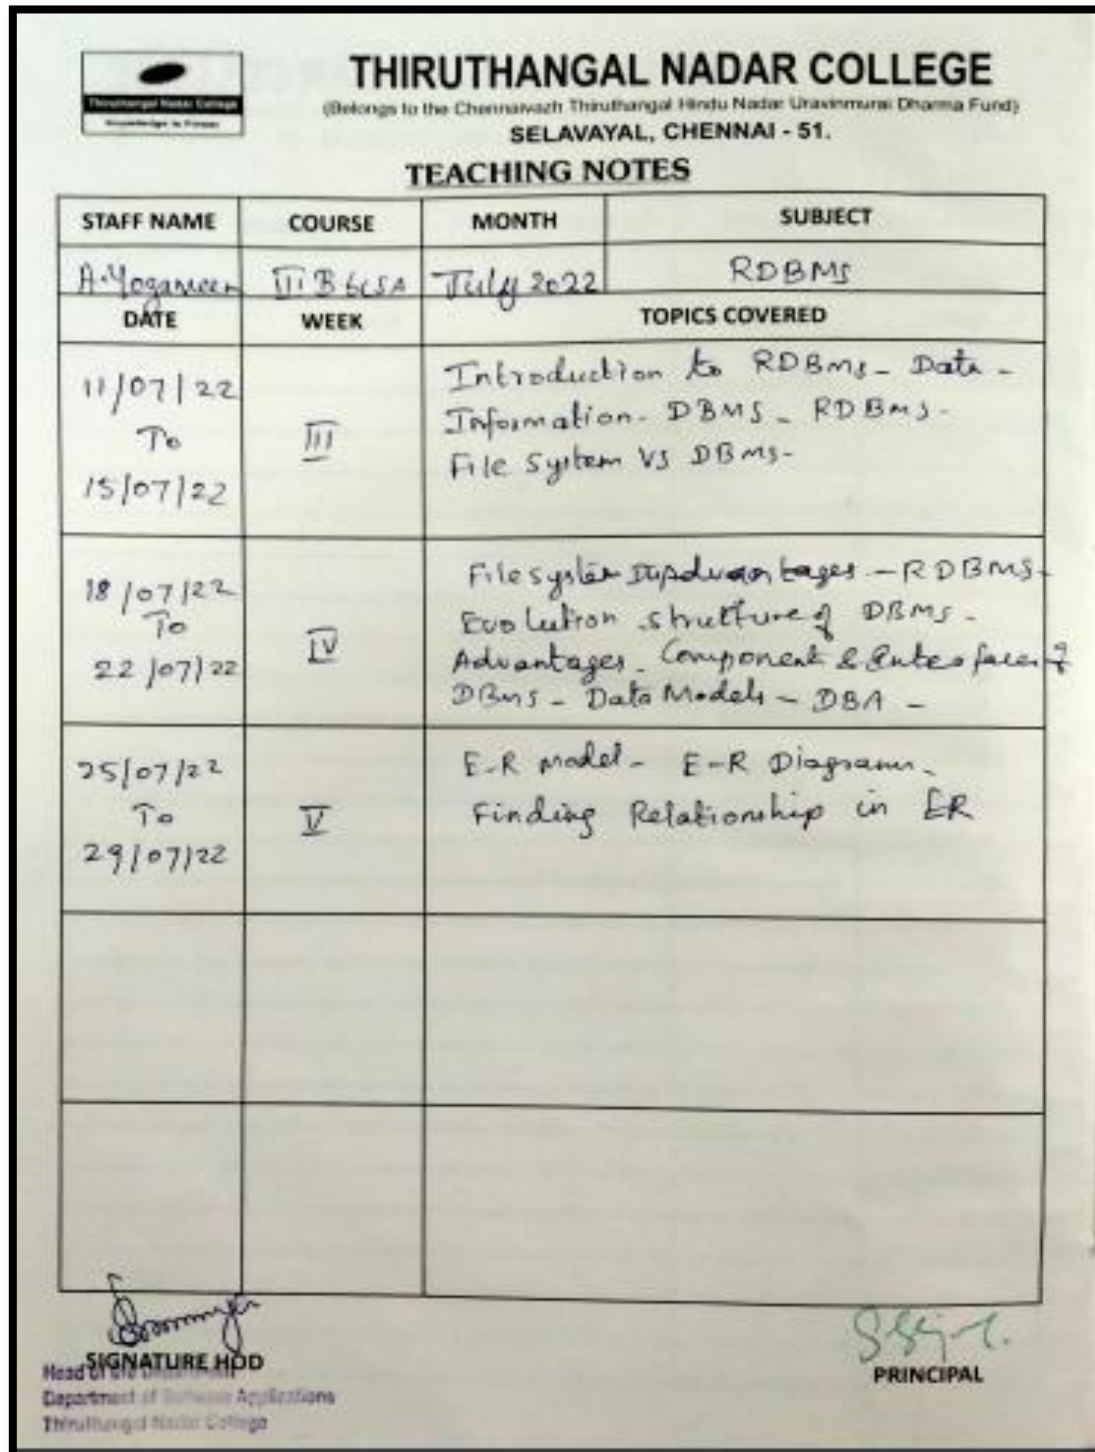 Thiruthangal Nadar College
Knowledge is Power
THIRUTHANGAL NADAR COLLEGE
(Belongs to the Chennaivazh Thiruthangal Hindu Nadar Uravinmurai Dharma Fund)
SELAVAYAL, CHENNAI - 51.
TEACHING NOTES
STAFF NAME COURSE MONTH SUBJECT
III July 2022 RDBMS
DATE WEEK TOPICS COVERED
11/07/22 To 15/07/22
III
Introduction to RDBMS - Data -
Information - DBMS - RDBMS -
File System VS DBMS -
18/07/22 To 22/07/22
IV
File system Disadvantages - RDBMS -
Evolution structure of DBMS -
Advantages - Component & Interfaces of
DBMS - Data Models - DBA -
25/07/22 To 29/07/22
V
E-R model - E-R Diagrams -
Finding Relationship in ER
SIGNATURE HOD
PRINCIPAL
Head of the Department
Department of Software Applications
Thiruthangal Nadar College